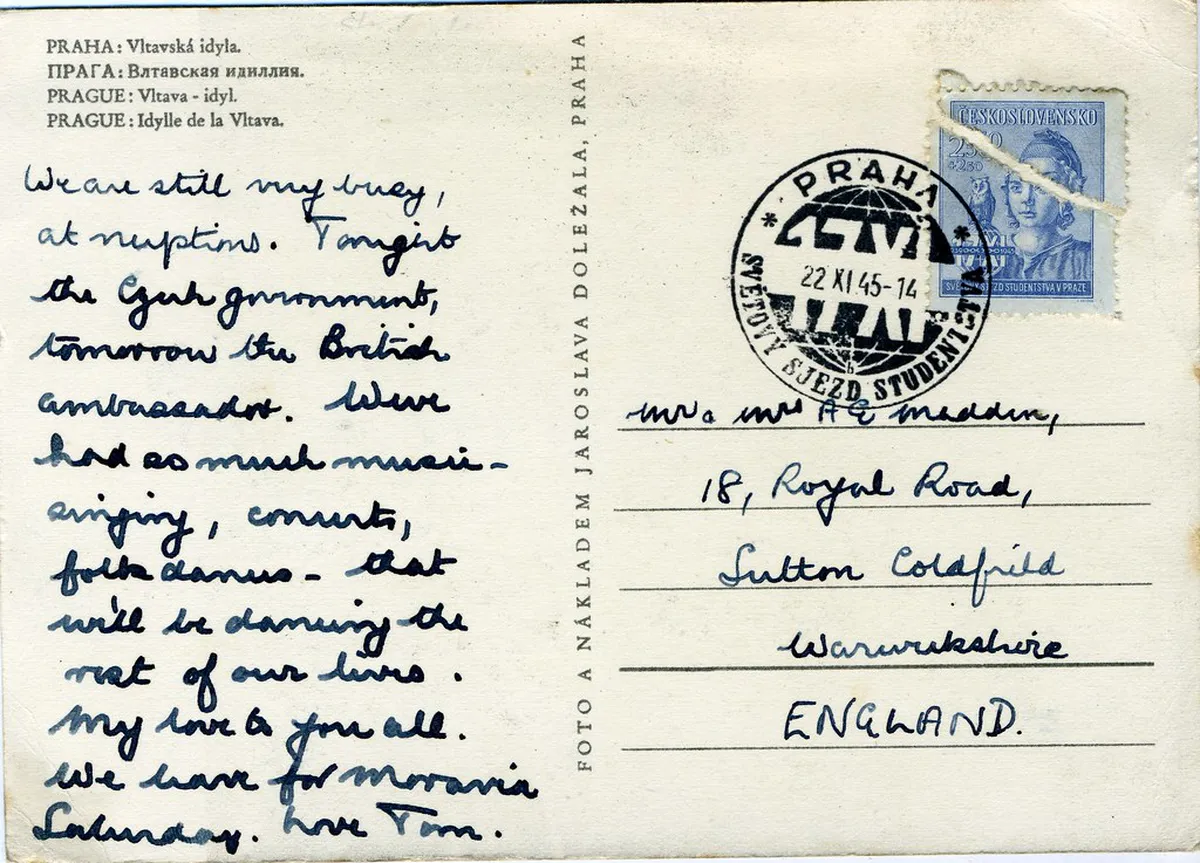 PRAHA: Vltavská idyla.
ПРАГА: Влтавская идиллия.
PRAGUE: Vltava - idyl.
PRAGUE: Idylle de la Vltava.
We are still very busy,
at receptions. Tonight
the Czech government,
tomorrow the British
ambassador. We've
had so much music -
singing, concerts,
folk dances - that
we'll be dancing the
rest of our lives.
My love to you all.
We leave for Moravia
Saturday. Love Tom.
FOTO A NÁKLADEM JAROSLAVA DOLEŽALA, PRAHA
ČESKOSLOVENSKO
2.50
+2.50
SVĚTOVÝ SJEZD STUDENTSTVA V PRAZE
* PRAHA *
22 XI 45-14
SVĚTOVÝ SJEZD STUDENTSTVA
Mr & Mrs A E Madden,
18, Royal Road,
Sutton Coldfield
Warwickshire
ENGLAND.